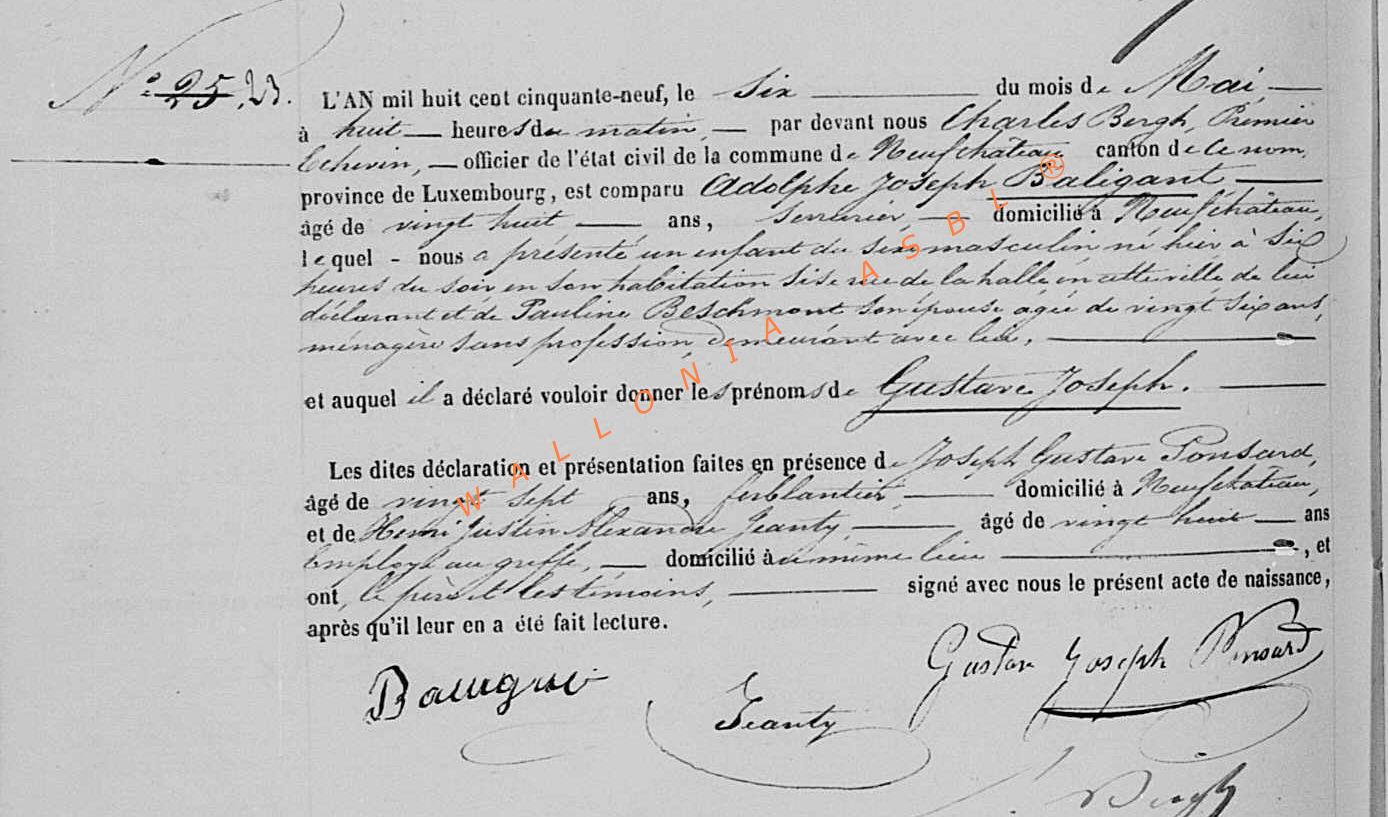 N° 25. 23.
L'AN mil huit cent cinquante-neuf, le six du mois de Mai
à huit heures du matin, par devant nous Charles Bergh, Prémier
Echevin, officier de l'état civil de la commune de Neufchâteau canton de ce nom,
province de Luxembourg, est comparu Adolphe Joseph Baligant
âgé de vingt huit ans, serrurier domicilié à Neufchâteau,
lequel - nous a présenté un enfant du sexe masculin né hier à six
heures du soir en son habitation sise rue de la halle en cette ville de lui
déclarant et de Pauline Beschmont son épouse agée de vingt six ans,
ménagère sans profession, demeurant avec lui,
et auquel il a déclaré vouloir donner les prénoms de Gustave Joseph.
Les dites déclaration et présentation faites en présence de Joseph Gustave Ponsard,
âgé de vingt sept ans, ferblantier, domicilié à Neufchateau,
et de Henri Justin Alexandre Jeanty, âgé de vingt huit ans
Employé au greffe, domicilié au même lieu, et
ont, le père et les témoins, signé avec nous le présent acte de naissance,
après qu'il leur en a été fait lecture.
Gustave Joseph Ponsard
Jeanty
Bergh
WALLONIA ASBL ®